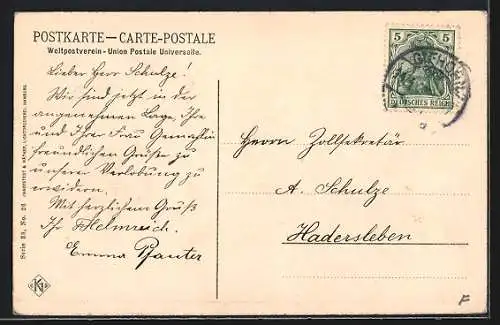 POSTKARTE — CARTE-POSTALE
Weltpostverein - Union Postale Universelle.
Lieber Herr Schulze!
Wir sind jetzt in der
angenehmen Lage, Ihre
und Ihrer Frau Gemahlin
freundlichen Grüße zu
unserer Verlobung zu
erwidern.
Mit herzlichem Gruß
Ihr
Emma
5 5
DEUTSCHES REICH
Herrn Zollsekretär
A. Schulze
Hadersleben
Serie 33, No. 23
F